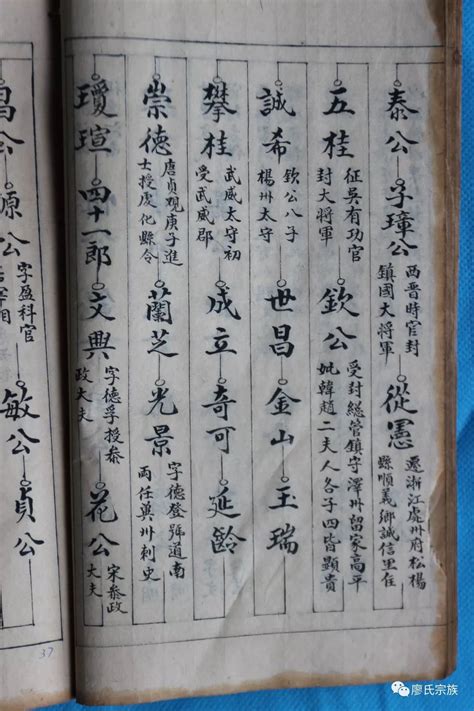 泰公 子璋公 西晋時官封鎮國大将軍 從憲 遷浙江處州府松楊縣順義鄉誠信里住
五桂 征吳有功官封大将軍 欽公 受封総管鎮守澤州留家高平 妣韓趙二夫人各子四皆顯貴
誠希 欽公八子楊州太守 世昌 金山 玉瑞
攀桂 武威太守初受武威郡 成立 奇可 延齡
崇德 唐貞观庚子進士授虔化縣令 蘭芝 光景 字德登號道南両任冀州刺史
瓊瑄 四十一郎 文興 字德孚授叅政大夫 花公 宋叅政大夫
昌公 源公 字盈科官 敏公 貞公
37
廖氏宗族